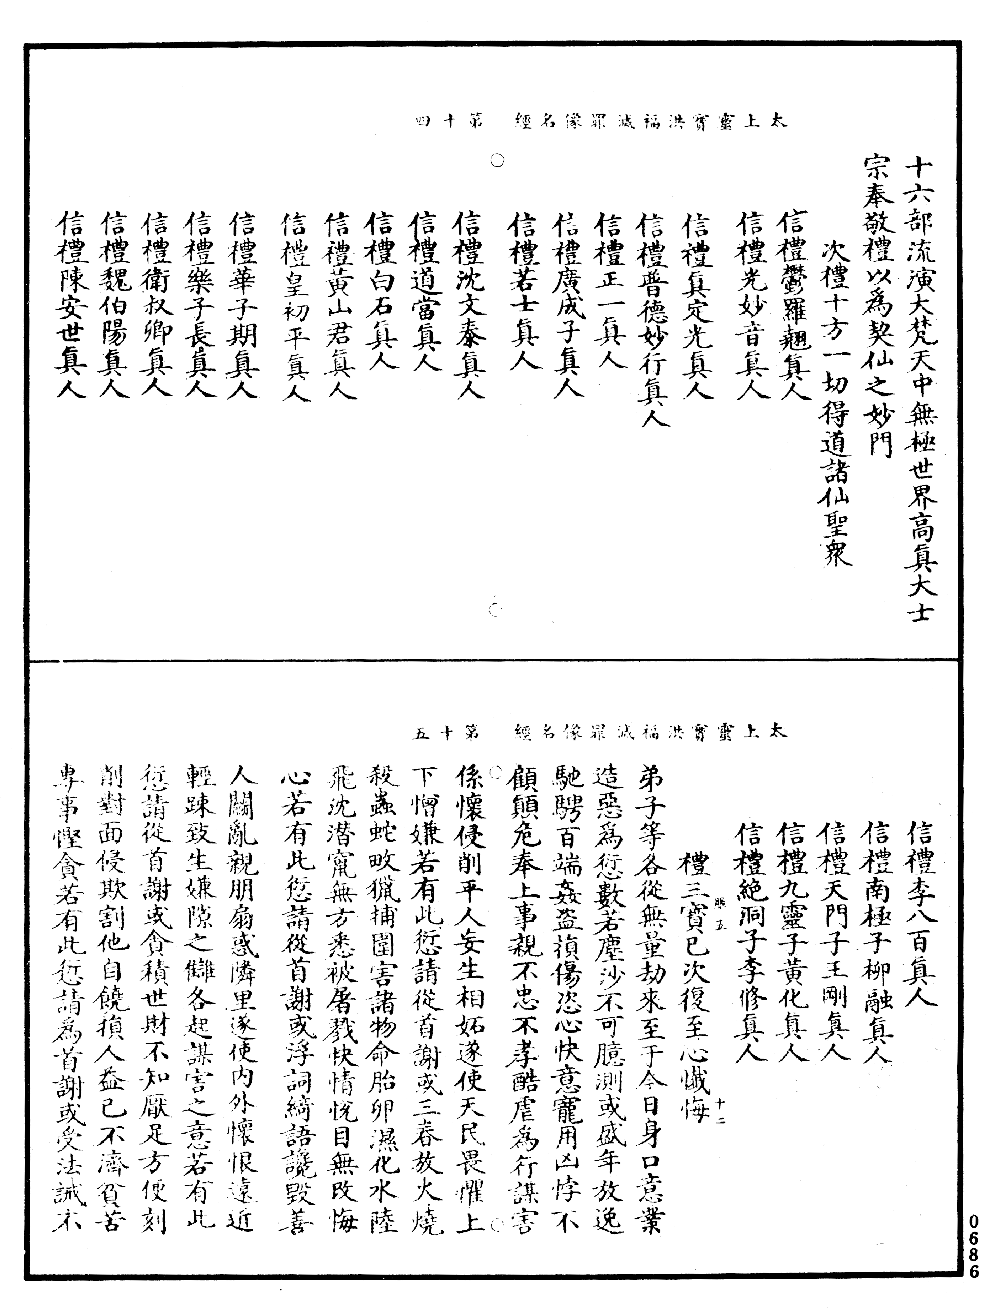 太上靈寶洪福滅罪像名經　第十四
十六部流演大梵天中無極世界高眞大士
宗奉敬禮以爲契仙之妙門
次禮十方一切得道諸仙聖衆
信禮鬱羅翹眞人
信禮光妙音眞人
信禮眞定光眞人
信禮普德妙行眞人
信禮正一眞人
信禮廣成子眞人
信禮若士眞人
信禮沈文泰眞人
信禮道當眞人
信禮白石眞人
信禮黃山君眞人
信禮皇初平眞人
信禮華子期眞人
信禮樂子長眞人
信禮衛叔卿眞人
信禮魏伯陽眞人
信禮陳安世眞人
太上靈寶洪福滅罪像名經　第十五
信禮李八百眞人
信禮南極子柳融眞人
信禮天門子王剛眞人
信禮九靈子黃化眞人
信禮絶洞子李修眞人
禮三寶已次復至心懺悔
五　十二
弟子等各從無量劫來至于今日身口意業
造惡爲愆數若塵沙不可臆測或盛年放逸
馳騁百端姦盜損傷恣心快意寵用凶悖不
顧顛危奉上事親不忠不孝酷虐爲行謀害
係懷侵削平人妄生相妬遂使天民畏懼上
下憎嫌若有此愆請從首謝或三春放火燒
殺蟲蛇畋獵捕圍害諸物命胎卵濕化水陸
飛沈潛竄無方悉被屠戮快情悅目無改悔
心若有此愆請從首謝或浮詞綺語讒毀善
人鬬亂親朋扇惑隣里遂使內外懷恨遠近
輕踈致生嫌隙之讎各起謀害之意若有此
愆請從首謝或貪積世財不知厭足方便刻
削對面侵欺割他自饒損人益己不濟貧苦
專事慳貪若有此愆請爲首謝或受法誡不
0686